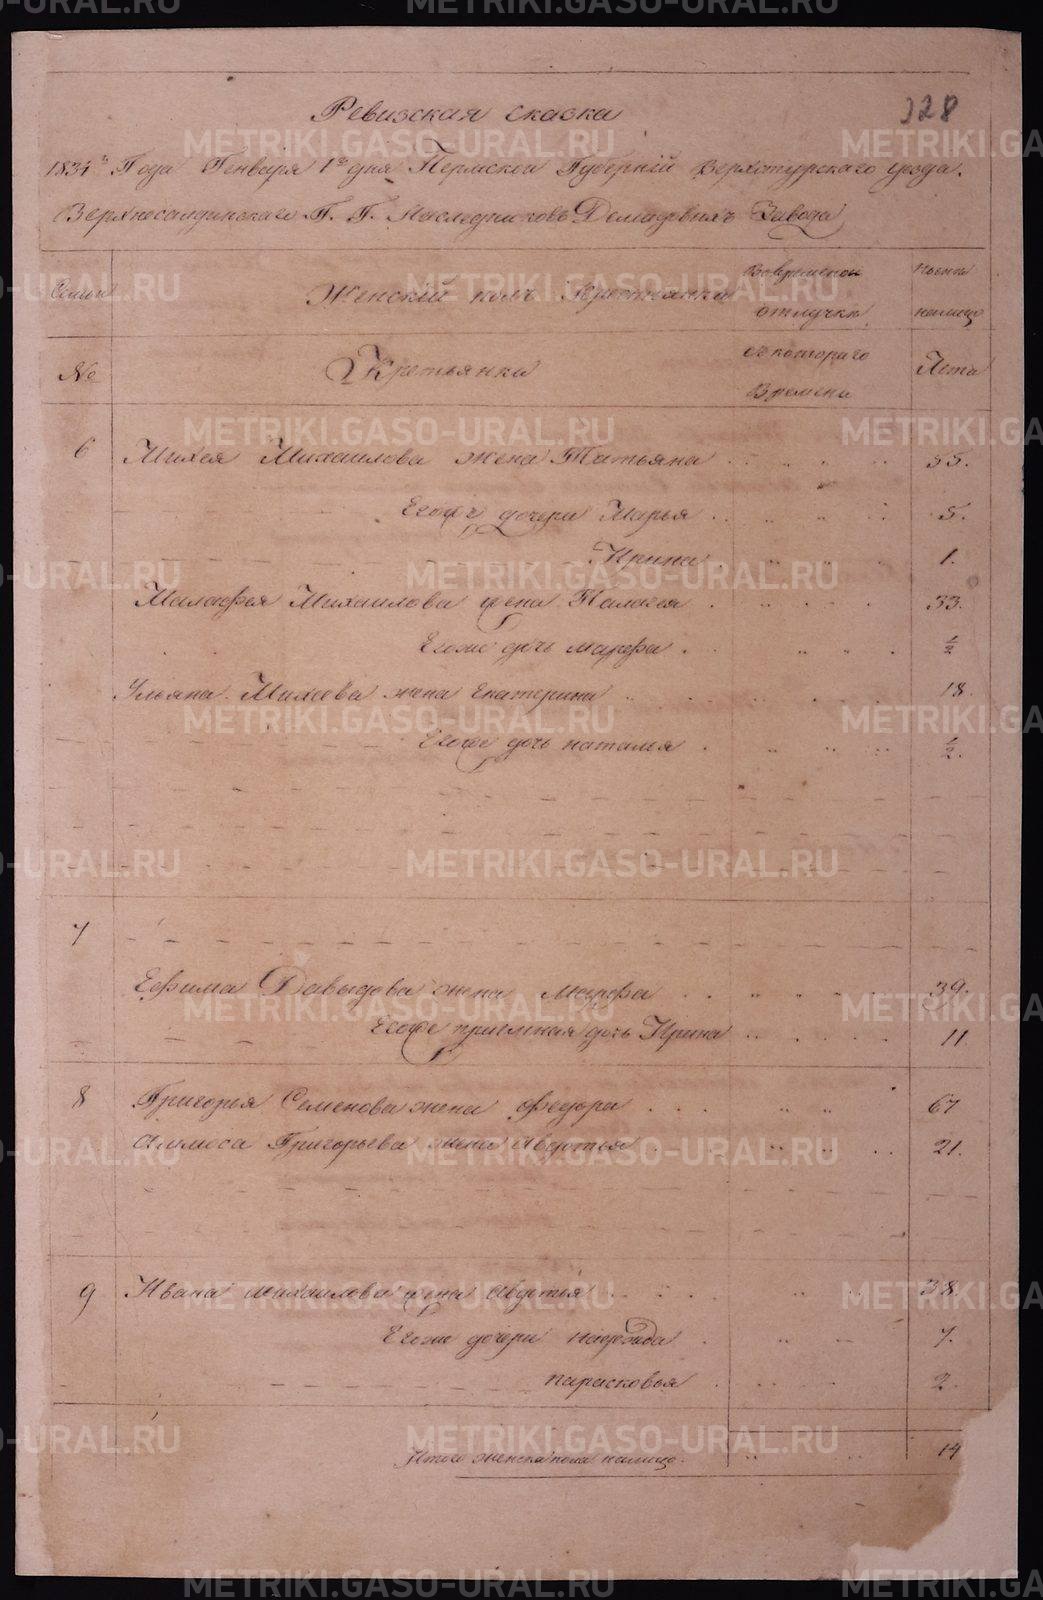 Ревизская сказка
328
1834го Года Генваря 1го дня Пермской Губернiй Верхотурскаго уезда.
Верхнесалдинскаго Г. Г. Наследниковъ Демидовыхъ Завода
Семьи Женскiй полъ Крестьянки Вовременой отлучке Ныне на лицо
№ Крестьянки съ котораго Времени Лета
6 Михея Михаилова жена Татьяна 55.
Егоже дочери Марья 5.
Ирина 1.
Малафея Михаилова жена Палагея 33.
Егоже дочь марфа ½
Ульяна Михеева жена Екатерина 18.
Егоже дочь наталья ½.
7
Ефима Давыдова жена марфа 39.
Егоже приемная дочь Ирина 11
8 Григорья Семенова жена федора 67
Аммоса Григорьева жена Авдотья 21.
9 Ивана михаилова жена Авдотья 38.
Егоже дочери насфида 7.
парасковья 2.
Итого женска пола налицо. 14
METRIKI.GASO-URAL.RU